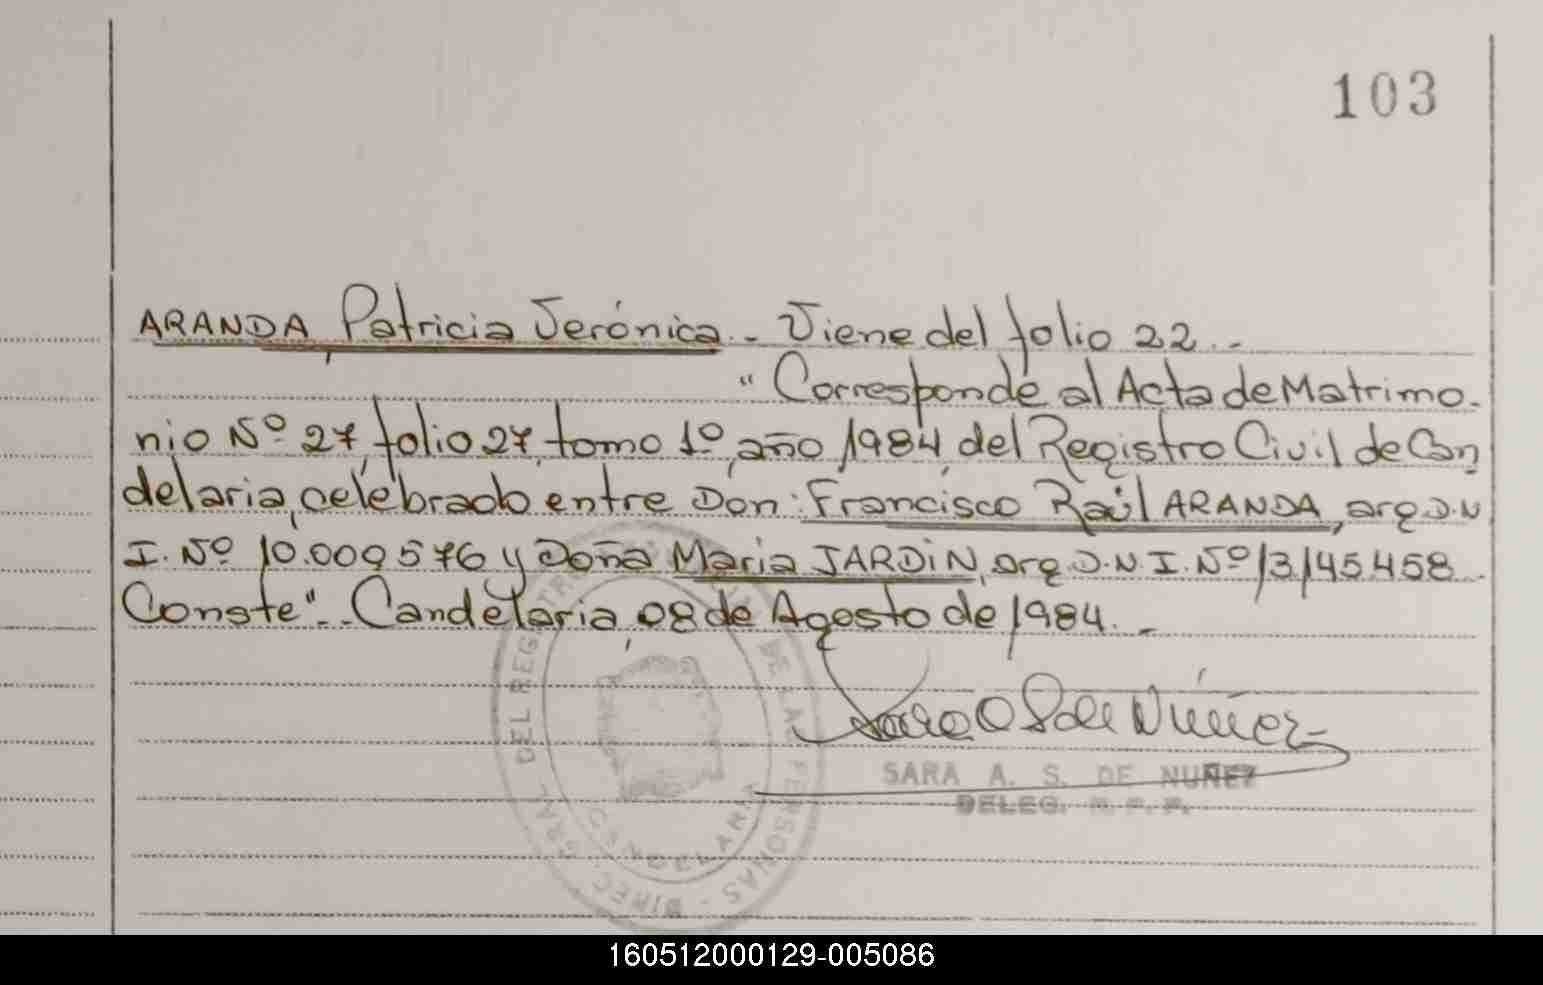 103
ARANDA, Patricia Verónica.- Viene del folio 22.-
"Corresponde al Acta de Matrimo-
nio Nº 27, folio 27, tomo 1º, año 1984, del Registro Civil de Can
delaria, celebrado entre Don: Francisco Raúl ARANDA, arg. D.N
I. Nº 10.009576 y Doña Maria JARDiN, arg. D.N.I. Nº 13145.458.
Conste".- Candelaria, 08 de Agosto de 1984.-
SARA A. S. DE NUÑEZ
DELEG. R. P. P.
DIREC. GRAL. DEL REGISTRO DE LAS PERSONAS
CANDELARIA
160512000129-005086